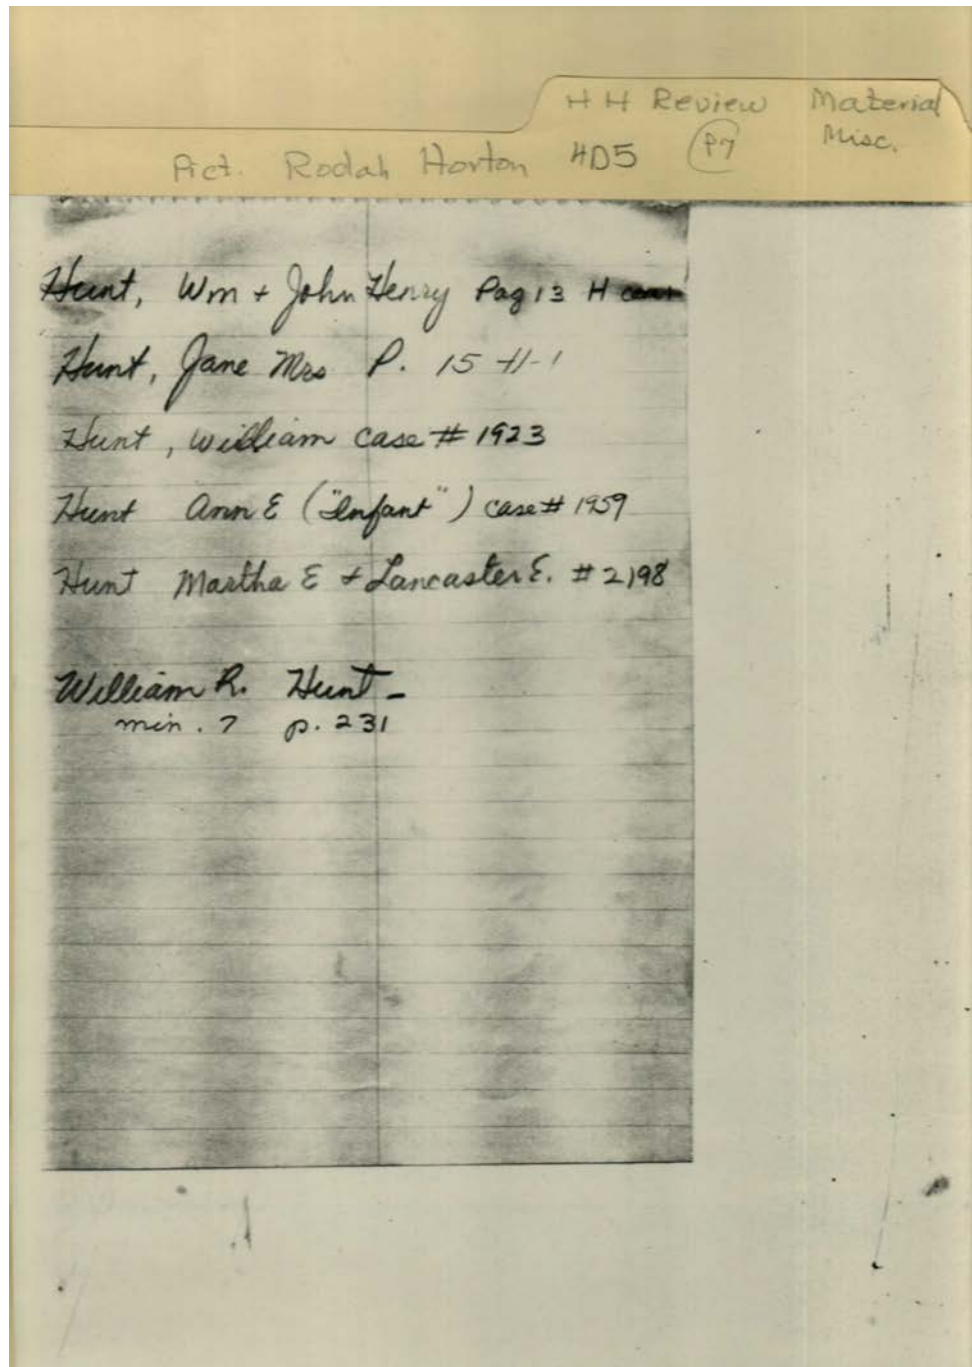 H H Review Material
Pict. Rodah Horton HD5 P7 Misc.
Hunt, Wm + John Henry Pag 13 H
Hunt, Jane Mrs P. 15 H-1
Hunt, William case # 1923
Hunt Ann E ("Infant") case # 1959
Hunt Martha E + Lancaster E. # 2198
William R. Hunt -
min. 7 p. 231